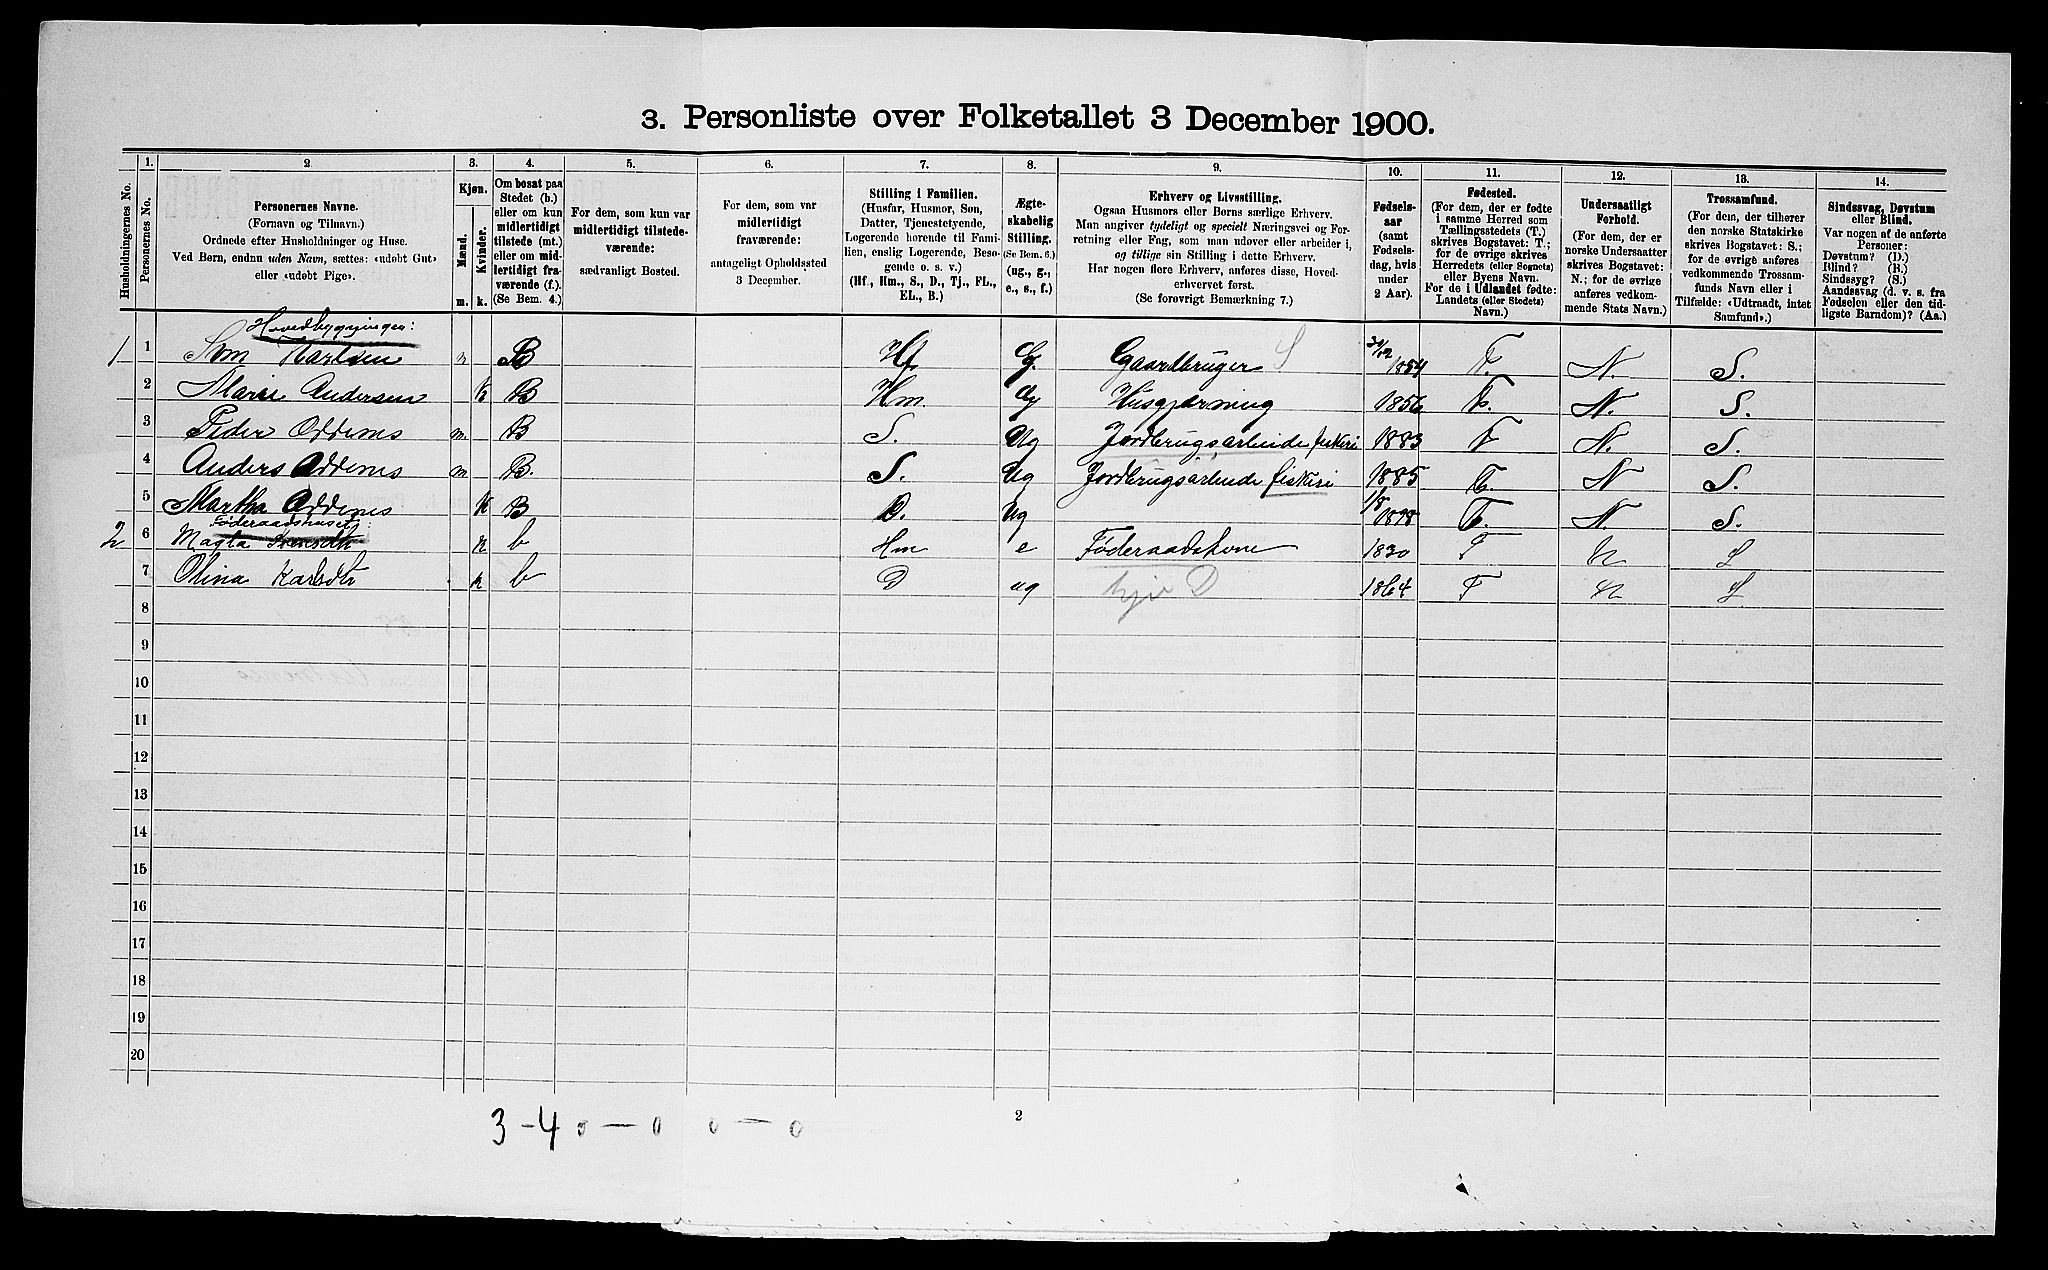 3. Personliste over Folketallet 3 December 1900.
Husholdningernes No.
1.
Personernes No.
2.
Personernes Navne.
(Fornavn og Tilnavn.)
Ordnede efter Husholdninger og Huse.
Ved Børn, endnu uden Navn, sættes: «udøbt Gut»
eller «udøbt Pige».
3.
Kjøn.
Mænd.
Kvinder.
m.
k.
4.
Om bosat paa
Stedet (b.)
eller om kun
midlertidigt
tilstede (mt.)
eller om mid-
lertidigt fra-
værende (f.).
(Se Bem. 4.)
5.
For dem, som kun var
midlertidigt tilstede-
værende:
sædvanligt Bosted.
6.
For dem, som var
midlertidigt
fraværende:
antageligt Opholdssted
3 December.
7.
Stilling i Familien.
(Husfar, Husmor, Søn,
Datter, Tjenestetyende,
Logerende hørende til Fami-
lien, enslig Logerende, Besø-
gende o. s. v.)
(Hf., Hm., S., D., Tj., FL.,
EL., B.)
8.
Ægte-
skabelig
Stilling.
(Se Bem. 6.)
(ug., g.,
e., s., f.)
9.
Erhverv og Livsstilling.
Ogsaa Husmors eller Børns særlige Erhverv.
Man angiver tydeligt og specielt Næringsvei og For-
retning eller Fag, som man udøver eller arbeider i,
og tillige sin Stilling i dette Erhverv.
Har nogen flere Erhverv, anføres disse, Hoved-
erhvervet først.
(Se forøvrigt Bemærkning 7.)
10.
Fødsels-
aar
(samt
Fødsels-
dag, hvis
under
2 Aar).
11.
Fødested.
(For dem, der er fødte
i samme Herred som
Tællingsstedets (T.)
skrives Bogstavet: T.;
for de øvrige skrives
Herredets (eller Sognets)
eller Byens Navn.
For de i Udlandet fødte:
Landets (eller Stedets)
Navn.)
12.
Undersaatligt
Forhold.
(For dem, der er
norske Undersaatter
skrives Bogstavet:
N.; for de øvrige
anføres vedkom-
mende Stats Navn.)
13.
Trossamfund.
(For dem, der tilhører
den norske Statskirke
skrives Bogstavet: S.;
for de øvrige anføres
vedkommende Trossam-
funds Navn eller i
Tilfælde: «Udtraadt, intet
Samfund».)
14.
Sindssvag, Døvstum
eller Blind.
Var nogen af de anførte
Personer:
Døvstum? (D.)
Blind? (B.)
Sindssyg? (S.)
Aandssvag (d. v. s. fra
Fødselen eller den tid-
ligste Barndom)? (Aa.)
Hovedbygningen:
1 1 Karlsen m B Hf G. Gaardbruger S 1854 T. N. S.
2 Marie Andersen k B Hm G Husgjerning 1856 T. N. S.
3 Peder Oddenes m. B S. Ug Jordbrugsarbeide fiskeri 1883 T N. S.
4 Anders Oddenes m B. S. Ug Jordbrugsarbeide fiskeri 1885 T. N S.
5 Martha Oddenes k B D. Ug 1/8 1898 T. N. S.
Føderaadshuset:
2 6 Magla k b Hm e Føderaadskone 1830 T N S
7 Olina Karlsdtr k b D ug hjv D 1864 T N S
8
9
10
11
12
13
14
15
16
17
18
19
20
3-4 0 — 0 0 — 0
2